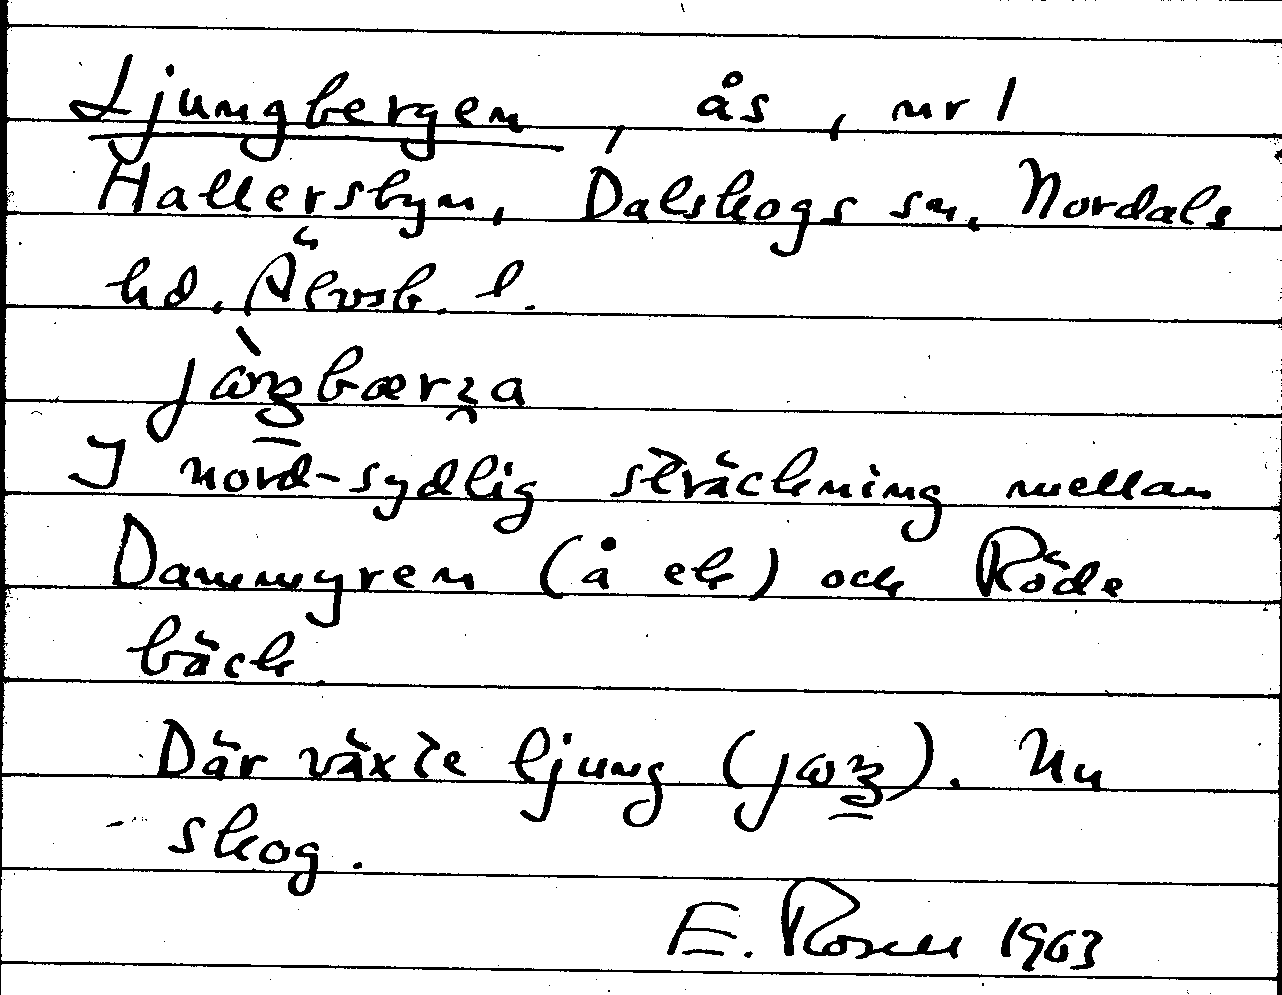 Ljungbergen, ås, nr 1
Hallersbyn, Dalskogs sn, Nordals
hd. Älvsb. l.
I nord-sydlig sträckning mellan
Dammyren (å ek) och Röde
bäck.
Där växte ljung (). Nu
skog.
E. Rosell 1963